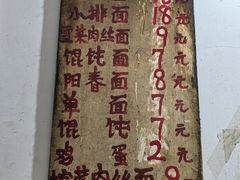 小排面 18元
菜肉丝面 9元
馄饨面 7元
阳春面 8元
单面 7元
馄饨 7元
鸡蛋 2元
菜肉丝面 9